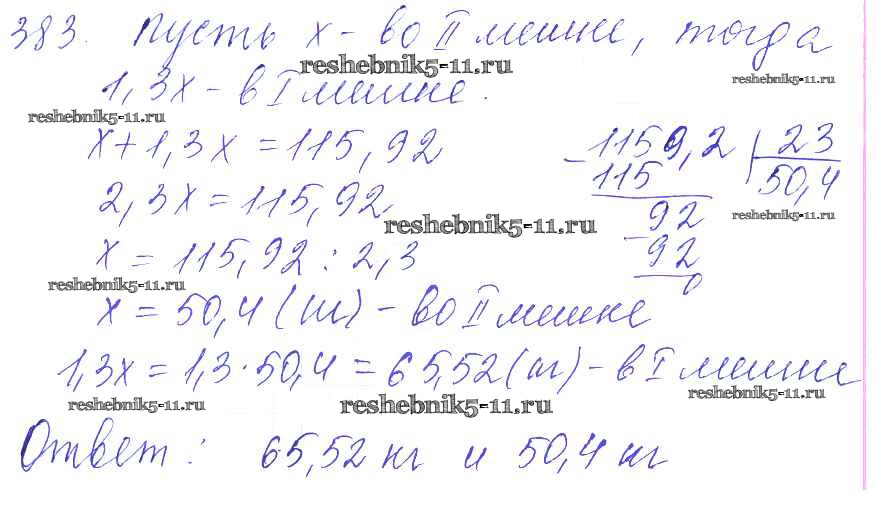 383. Пусть x - во II мешке, тогда
reshebnik5-11.ru
reshebnik5-11.ru
1,3x - в I мешке.
reshebnik5-11.ru
x + 1,3x = 115,92
1159,2 | 23
- 115
50,4
2,3x = 115,92
reshebnik5-11.ru
reshebnik5-11.ru
92
x = 115,92 : 2,3
- 92
reshebnik5-11.ru
0
x = 50,4 (кг) - во II мешке
1,3x = 1,3 · 50,4 = 65,52 (кг) - в I мешке
reshebnik5-11.ru
reshebnik5-11.ru
reshebnik5-11.ru
Ответ: 65,52 кг и 50,4 кг